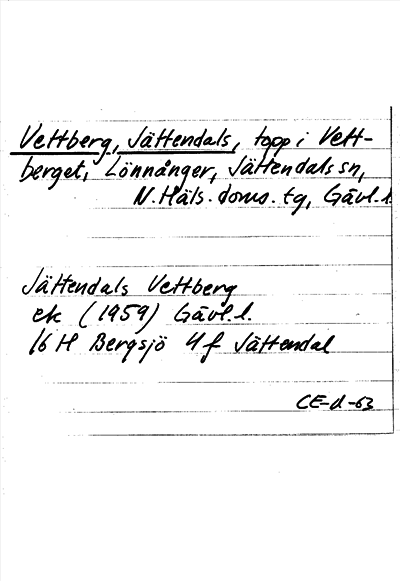 Vettberg, Jättendals, topp i Vett-
berget, Lönnånger, Jättendals sn,
N. Häls. doms. tg, Gävl. l.
Jättendals Vettberg
ek (1959) Gävl. l.
16 H Bergsjö 4 f Jättendal
CE-d-63